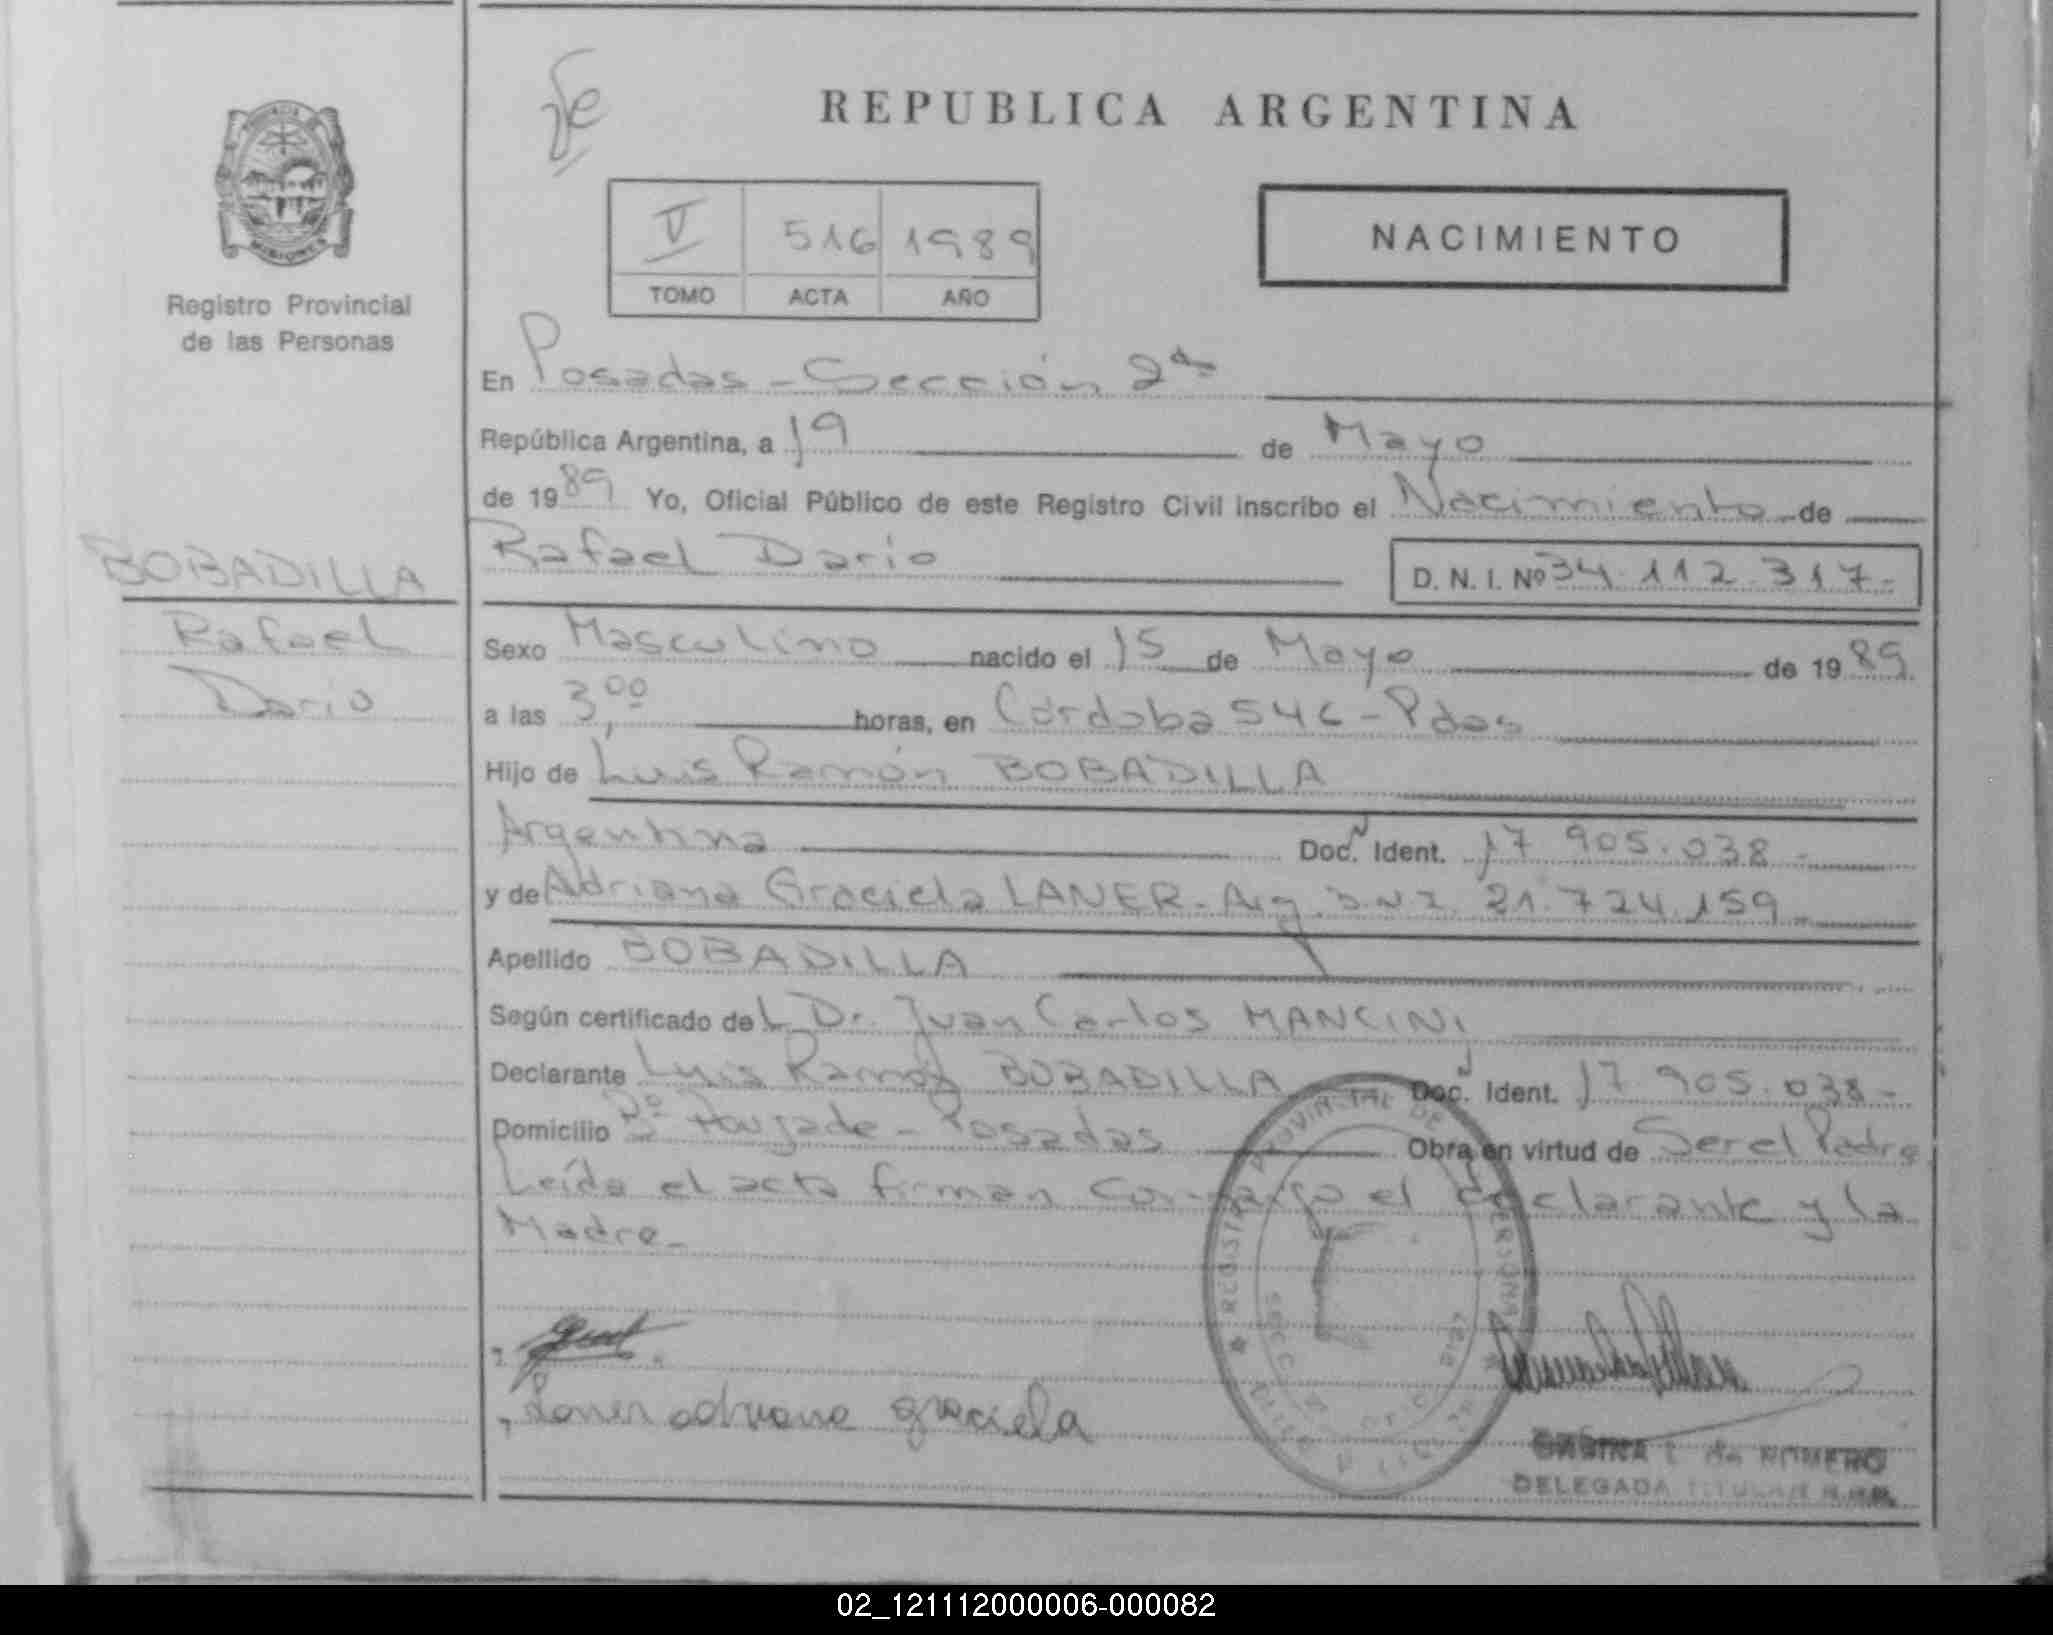 REPUBLICA ARGENTINA
V 516 1989
TOMO ACTA AÑO
NACIMIENTO
Registro Provincial
de las Personas
En Posadas - Sección 2ª
República Argentina, a 19 de Mayo
de 1989 Yo, Oficial Público de este Registro Civil inscribo el Nacimiento de
BOBADILLA
Rafael
Dario
Rafael Dario
D. N. I. Nº 34.112.317-
Sexo Masculino nacido el 15 de Mayo de 1989
a las 3,00 horas, en Córdoba 546 - Pdas
Hijo de Luis Ramón BOBADILLA
Argentina Doc. Ident. 17.905.038-
y de Adriana Graciela LANER - Arg. D.N.I. 21.724.159-
Apellido BOBADILLA
Según certificado del Dr. Juan Carlos MANCINI
Declarante Luis Ramón BOBADILLA Doc. Ident. 17.905.038-
Domicilio Bº - Posadas Obra en virtud de Ser el Padre
Leída el acta firman conmigo el declarante y la
Madre-
Laner adriana graciela
de ROMERO
DELEGADA TITULAR
02_121112000006-000082